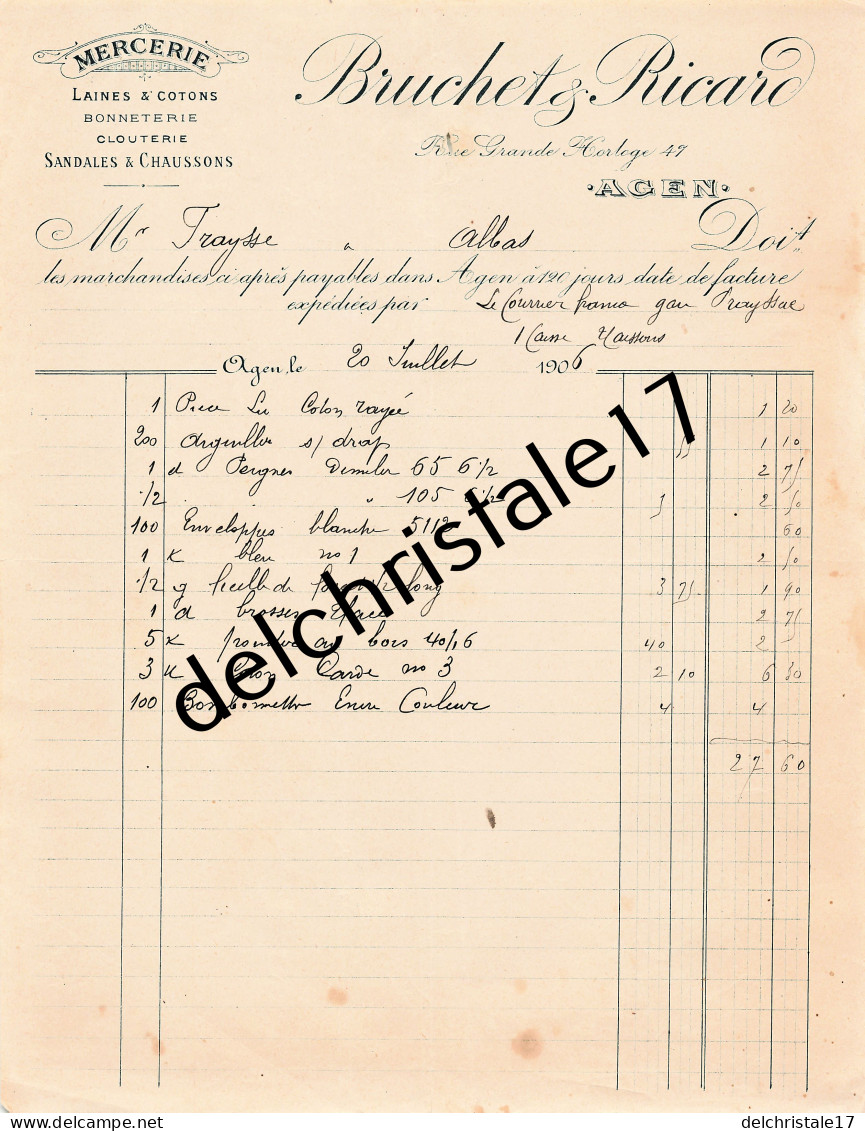 MERCERIE
LAINES & COTONS
BONNETERIE
CLOUTERIE
SANDALES & CHAUSSONS
Bruchet & Ricard
Rue Grande Horloge 47
AGEN
Mr Traysse à Albas Doit
les marchandises ci après payables dans Agen à 120 jours date de facture
expédiées par Le Courrier franco gare Prayssac
1 Caisse
Agen, le 20 Juillet 1906
1 Piece Coton rayée 1 20
200 s/ drap 1 10
1 d Peignes 65 6 1/2 2 75
1/2 " 105 6 1/2 5 2 50
100 Enveloppes blanche 5112 60
1 K bleu no 1 2 50
1/2 g long 3 75 1 90
1 d brosses 2 75
5 K bois 40/16 40 2
3 K Carde no 3 2 10 6 30
100 Couleur 4 4
27 60
delchristale17
delcampe.net delchristale17